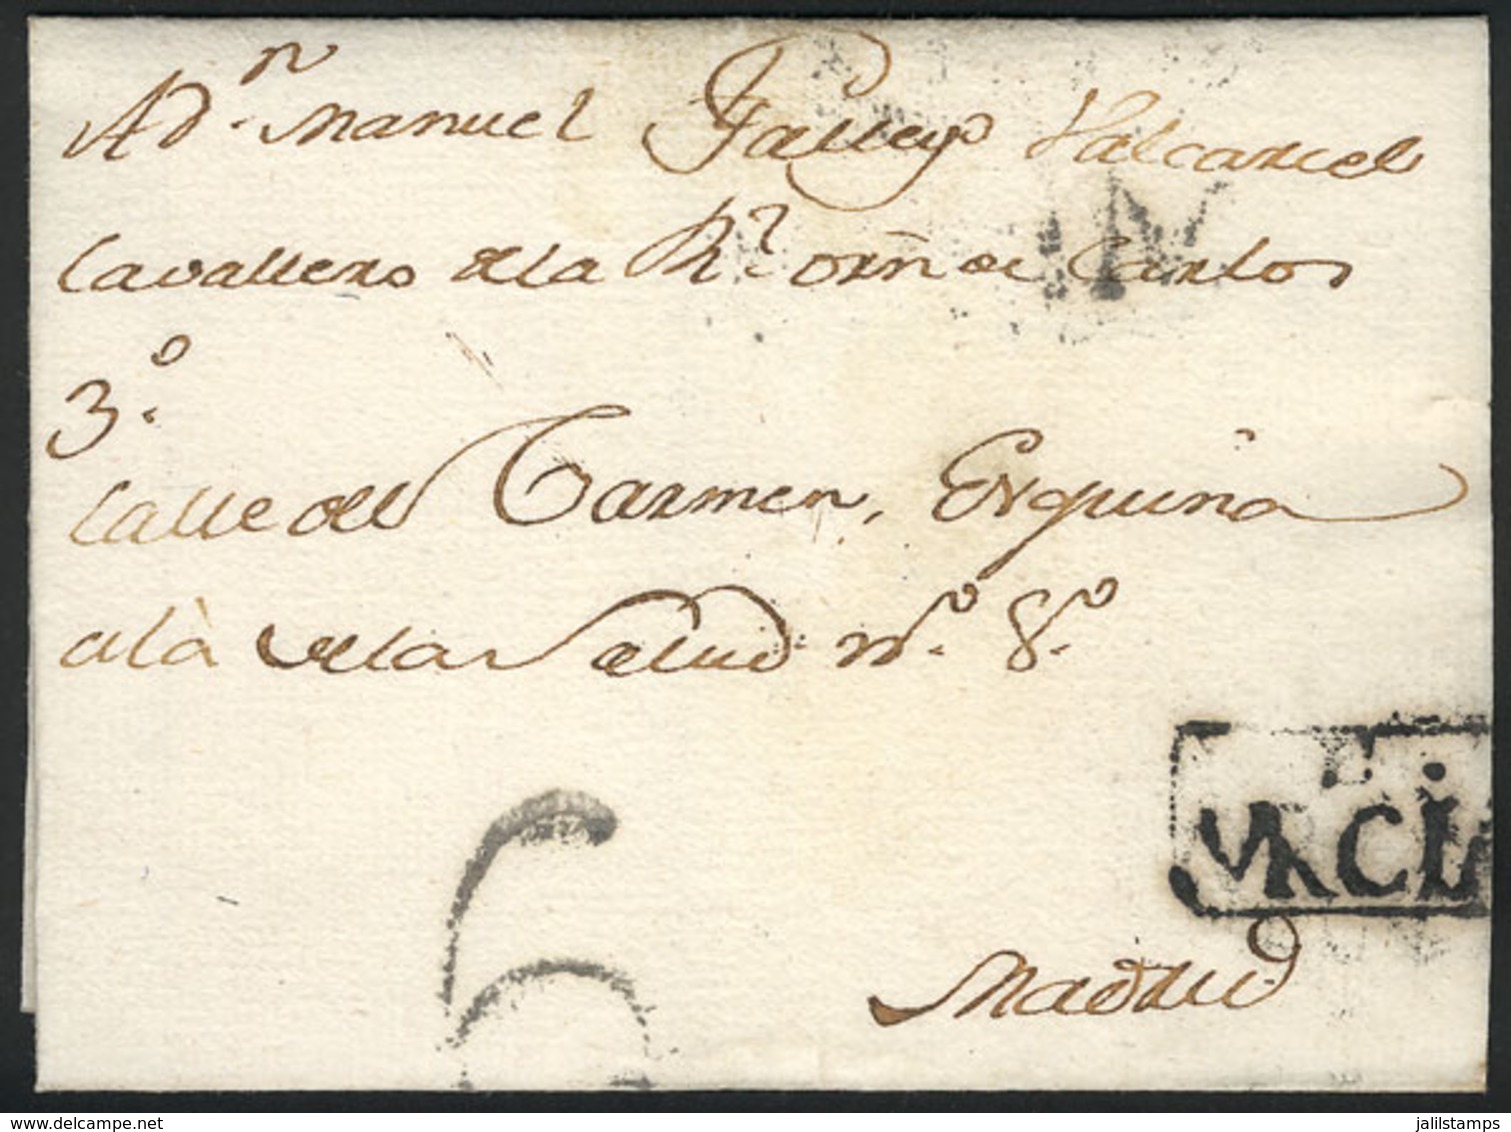 A Dn. Manuel Falleyo Valcarcel
Cavallero de la Rl. orñ de Carlos
3o.
Calle del Carmen, Esquina
a la de la Salud no. 8o.
6
Madrid
delcampe.net
jalilstamps